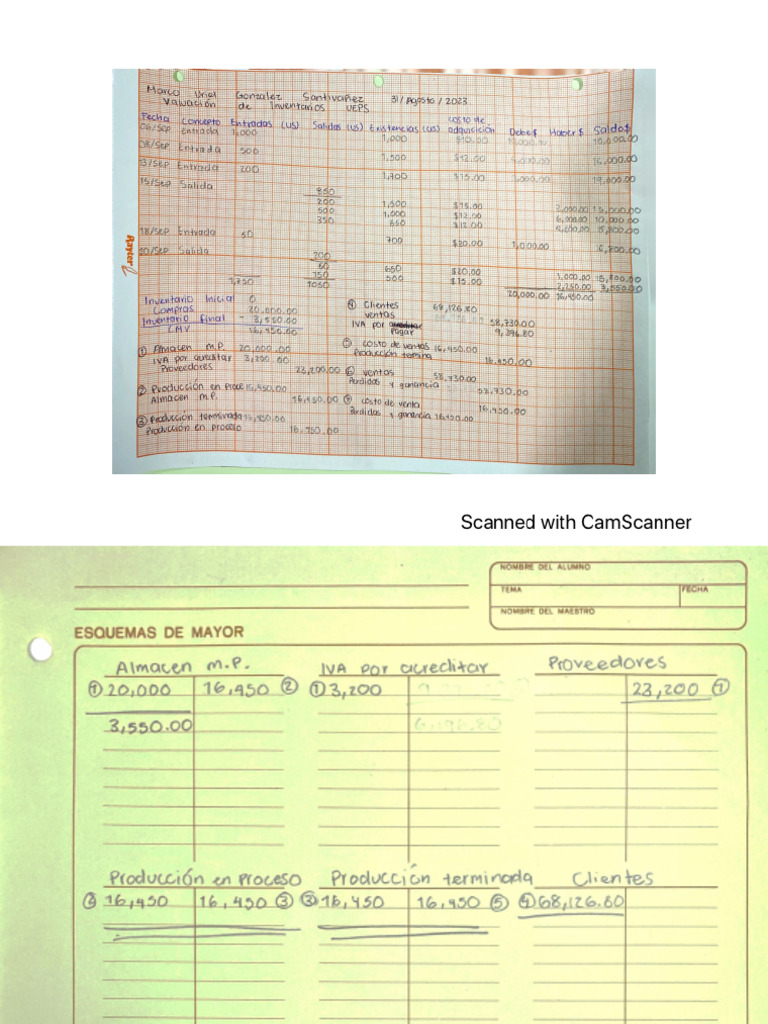 Marco Uriel Gonzalez Santivañez 31/Agosto/2023
Valuación de Inventarios UEPS
Fecha Concepto Entradas (us) Salidas (us) Existencias (us) costo de adquisición Debe$ Haber$ Saldo$
06/Sep Entrada 1,000 1,000 $10.00 10,000.00
08/Sep Entrada 500 1,500 $12.00 16,000.00
13/Sep Entrada 200 1,700 $15.00 19,000.00
15/Sep Salida
850
200 1,500 $15.00
500 1,000 $12.00 6,000.00 10,000.00
350 650
18/Sep Entrada 50 700 $20.00 1,000.00
Salida
200
50 650 $20.00 1,000.00
150 500 $15.00 2,250.00 3,550.00
1,750 1050 20,000.00 16,450.00
Rayter
Inventario Inicial 0
Compras 20,000.00
Inventario final - 3,550.00
CMV 16,450.00
① Almacen M.P. 20,000.00
IVA por acreditar 3,200.00
Proveedores 23,200.00
② Producción en Proce 16,450.00
Almacen M.P. 16,450.00
③ Producción terminada 16,450.00
Producción en proceso 16,450.00
④ Clientes 68,126.80
ventas 58,730.00
IVA por Pagar 9,396.80
⑤ costo de ventas 16,450.00
Producción termina 16,450.00
⑥ ventas 58,730.00
Perdidas y ganancia 58,730.00
costo de venta 16,450.00
Perdidas y ganancia 16,450.00
Scanned with CamScanner
NOMBRE DEL ALUMNO
TEMA FECHA
NOMBRE DEL MAESTRO
ESQUEMAS DE MAYOR
Almacen M.P. IVA por acreditar Proveedores
① 20,000 16,450 ② ① 3,200 23,200 ①
3,550.00 6,196.80
Producción en Proceso Producción terminada Clientes
② 16,450 16,450 ③ ③ 16,450 16,450 ⑤ ④ 68,126.80